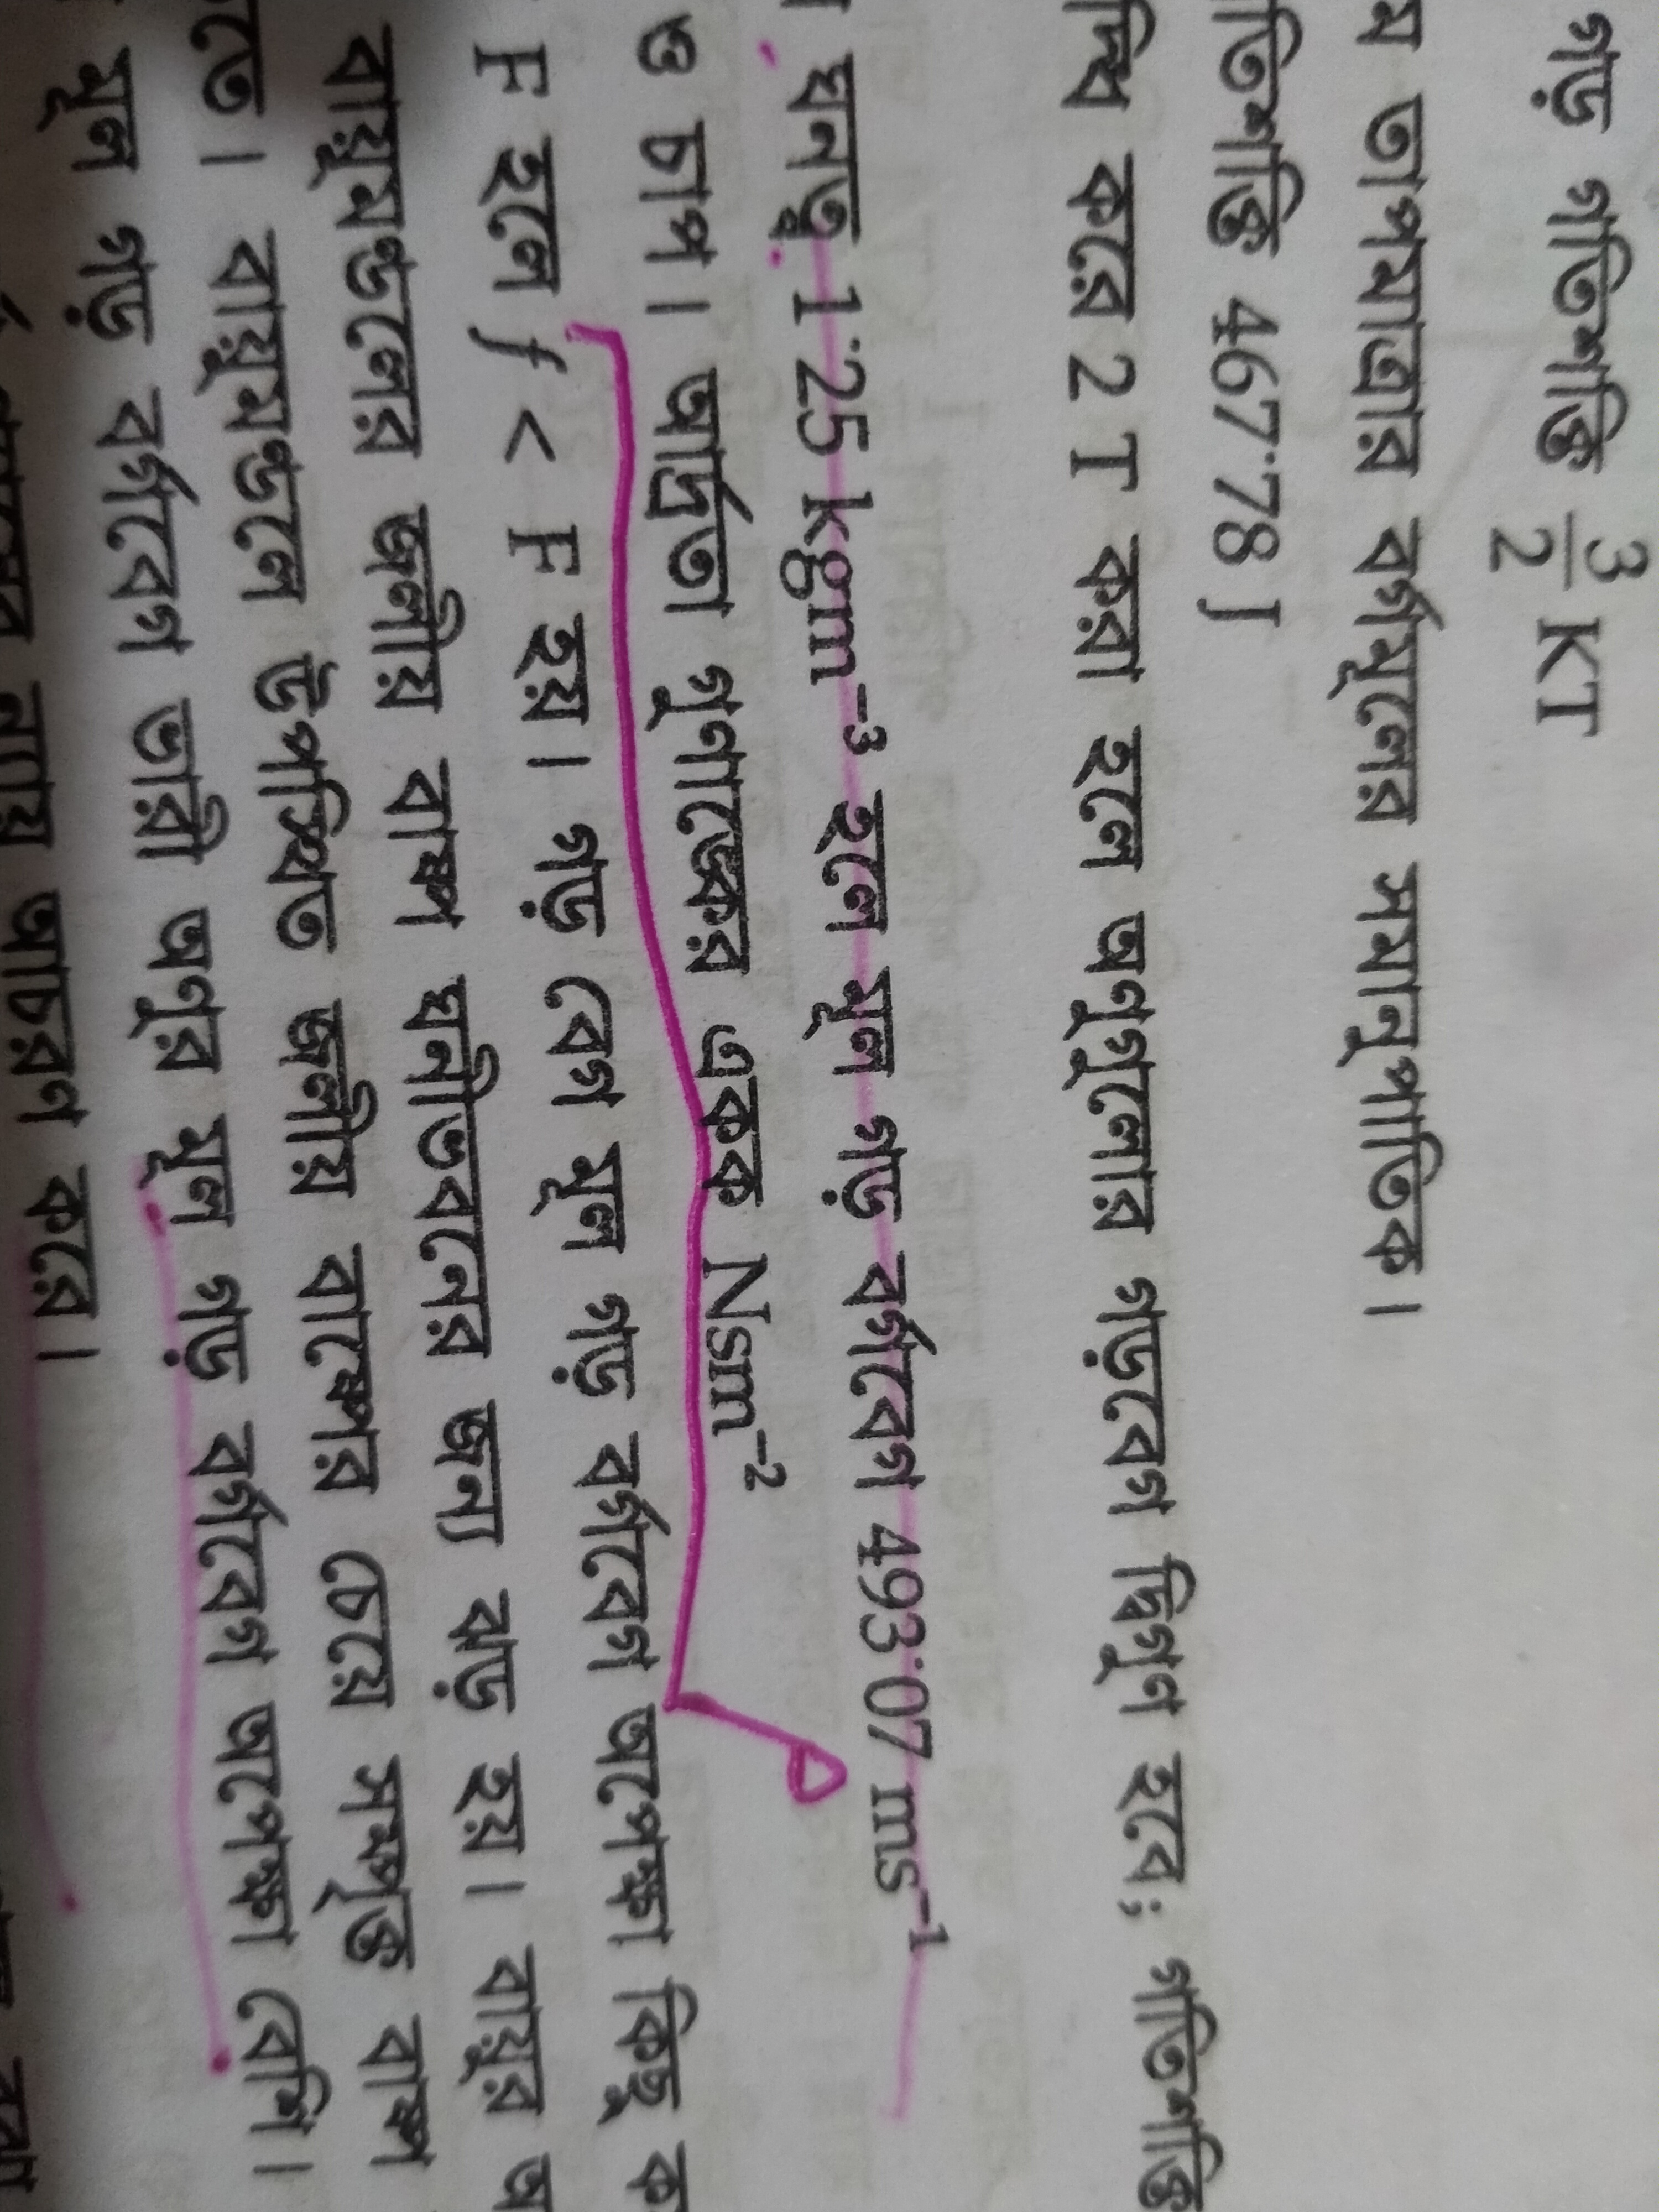 গড় গতিশক্তি 3/2 KT
ম তাপমাত্রার বর্গমূলের সমানুপাতিক।
গতিশক্তি 467·78 J
করে 2 T করা হলে অণুগুলোর গড়বেগ দ্বিগুণ হবে; গতিশক্তি
ঘনত্ব 1·25 kgm⁻³ হলে মূল গড় বর্গবেগ 493·07 ms⁻¹
ও চাপ। আর্দ্রতা গুণাঙ্কের একক Nsm⁻²
F হলে f < F হয়। গড় বেগ মূল গড় বর্গবেগ অপেক্ষা কিছু ক
বায়ুমণ্ডলের জলীয় বাষ্প ঘনীভবনের জন্য ঝড় হয়। বায়ুর জ
তে। বায়ুমণ্ডলে উপস্থিত জলীয় বাষ্পের চেয়ে সম্পৃক্ত বাষ্প
মূল গড় বর্গবেগ ভারী অণুর মূল গড় বর্গবেগ অপেক্ষা বেশি।
আচরণ করে।